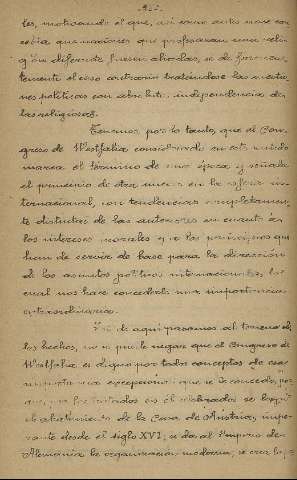 tes, motivando el que, así como antes no se con
cebía que naciones que profesaran una reli
gión diferente fuesen aliadas, se dé frecuen
temente el caso contrario tratándose las cuestio
nes políticas con absoluta independencia de
las religiosas.
Tenemos por lo tanto, que el Con
greso de Westfalia considerado en este sentido
marca el término de una época y señala
el principio de otra nueva en la esfera in
ternacional, con tendencias completamen
te distintas de las anteriores en cuanto á
los intereses morales y á los principios que
han de servir de base para la dirección
de los asuntos políticos internacionales, lo
cual nos hace concederle una importancia
extraordinaria.
Si de aquí pasamos al terreno de
los hechos, no se puede negar que el Congreso de
Westfalia es digno por todos conceptos de esa
importancia excepcional que se le concede, por
que, en los tratados en él celebrados se logró
el abatimiento de la Casa de Austria, impe
rante desde el siglo XVI; se da al Imperio de
Alemania la organización moderna; se crea la